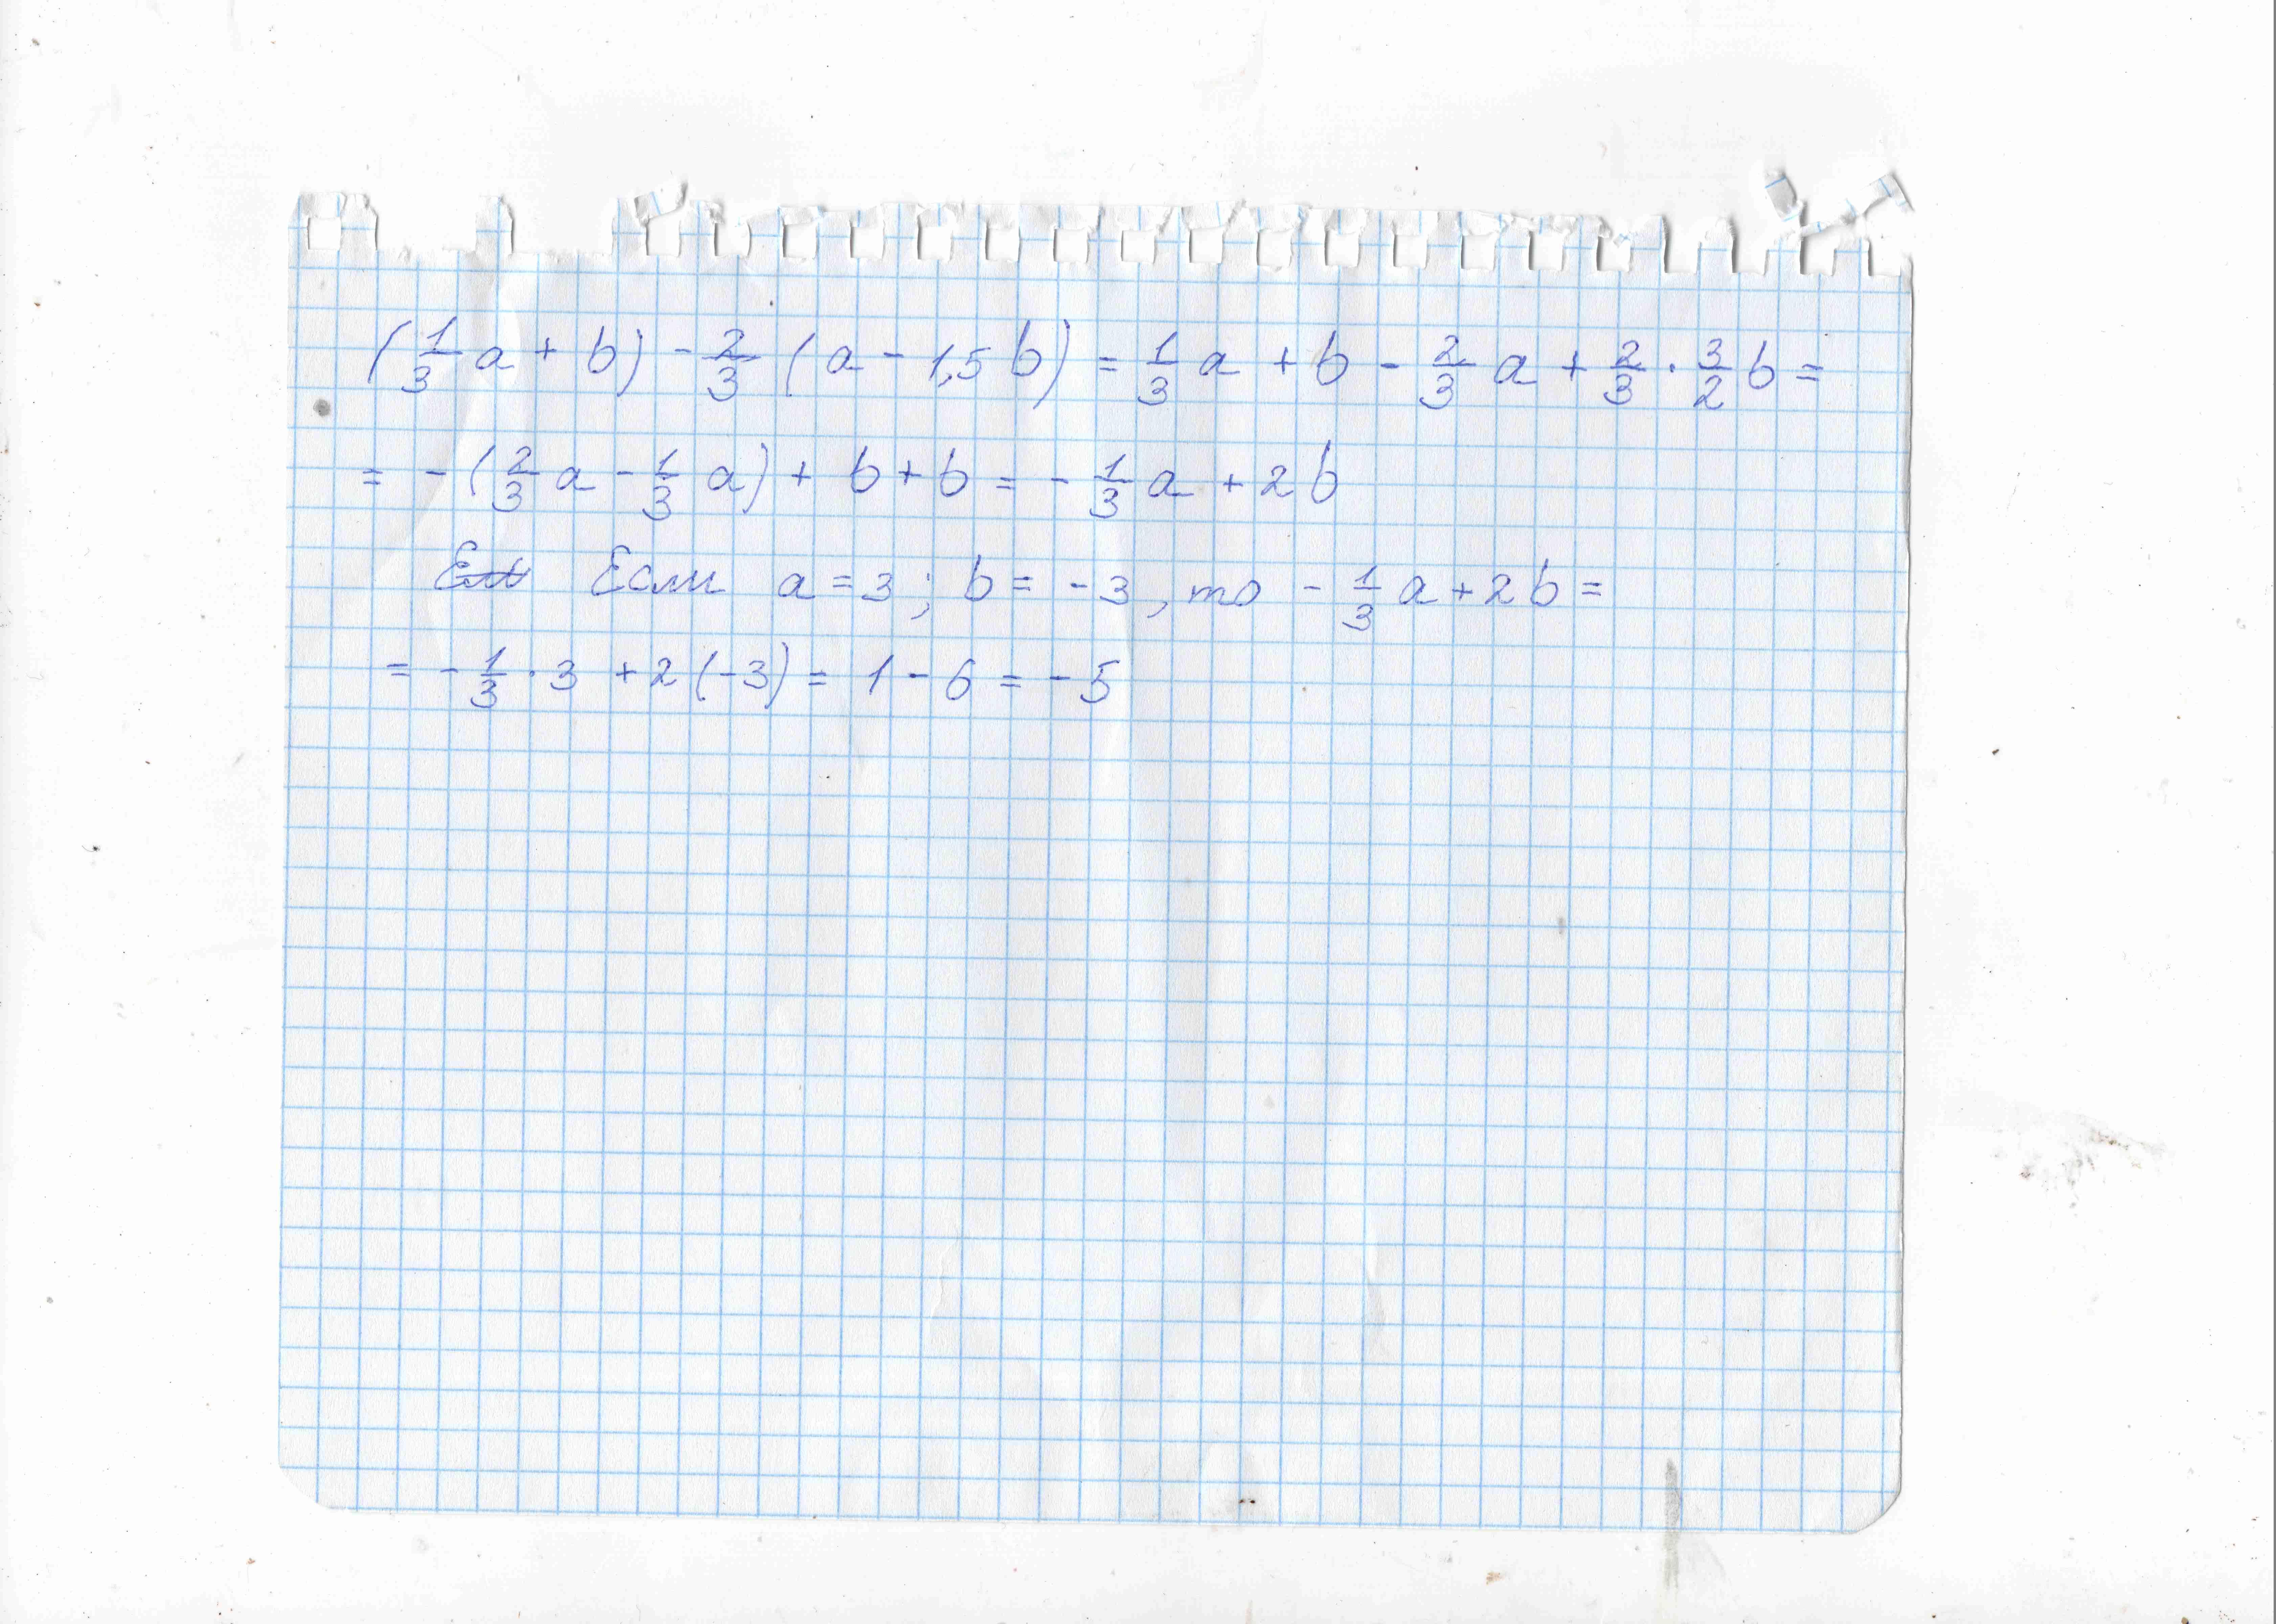 (1/3 a + b) - 2/3 (a - 1,5 b) = 1/3 a + b - 2/3 a + 2/3 · 3/2 b =
= - (2/3 a - 1/3 a) + b + b = - 1/3 a + 2b
Если a = 3; b = -3, то - 1/3 a + 2b =
= - 1/3 · 3 + 2(-3) = 1 - 6 = -5